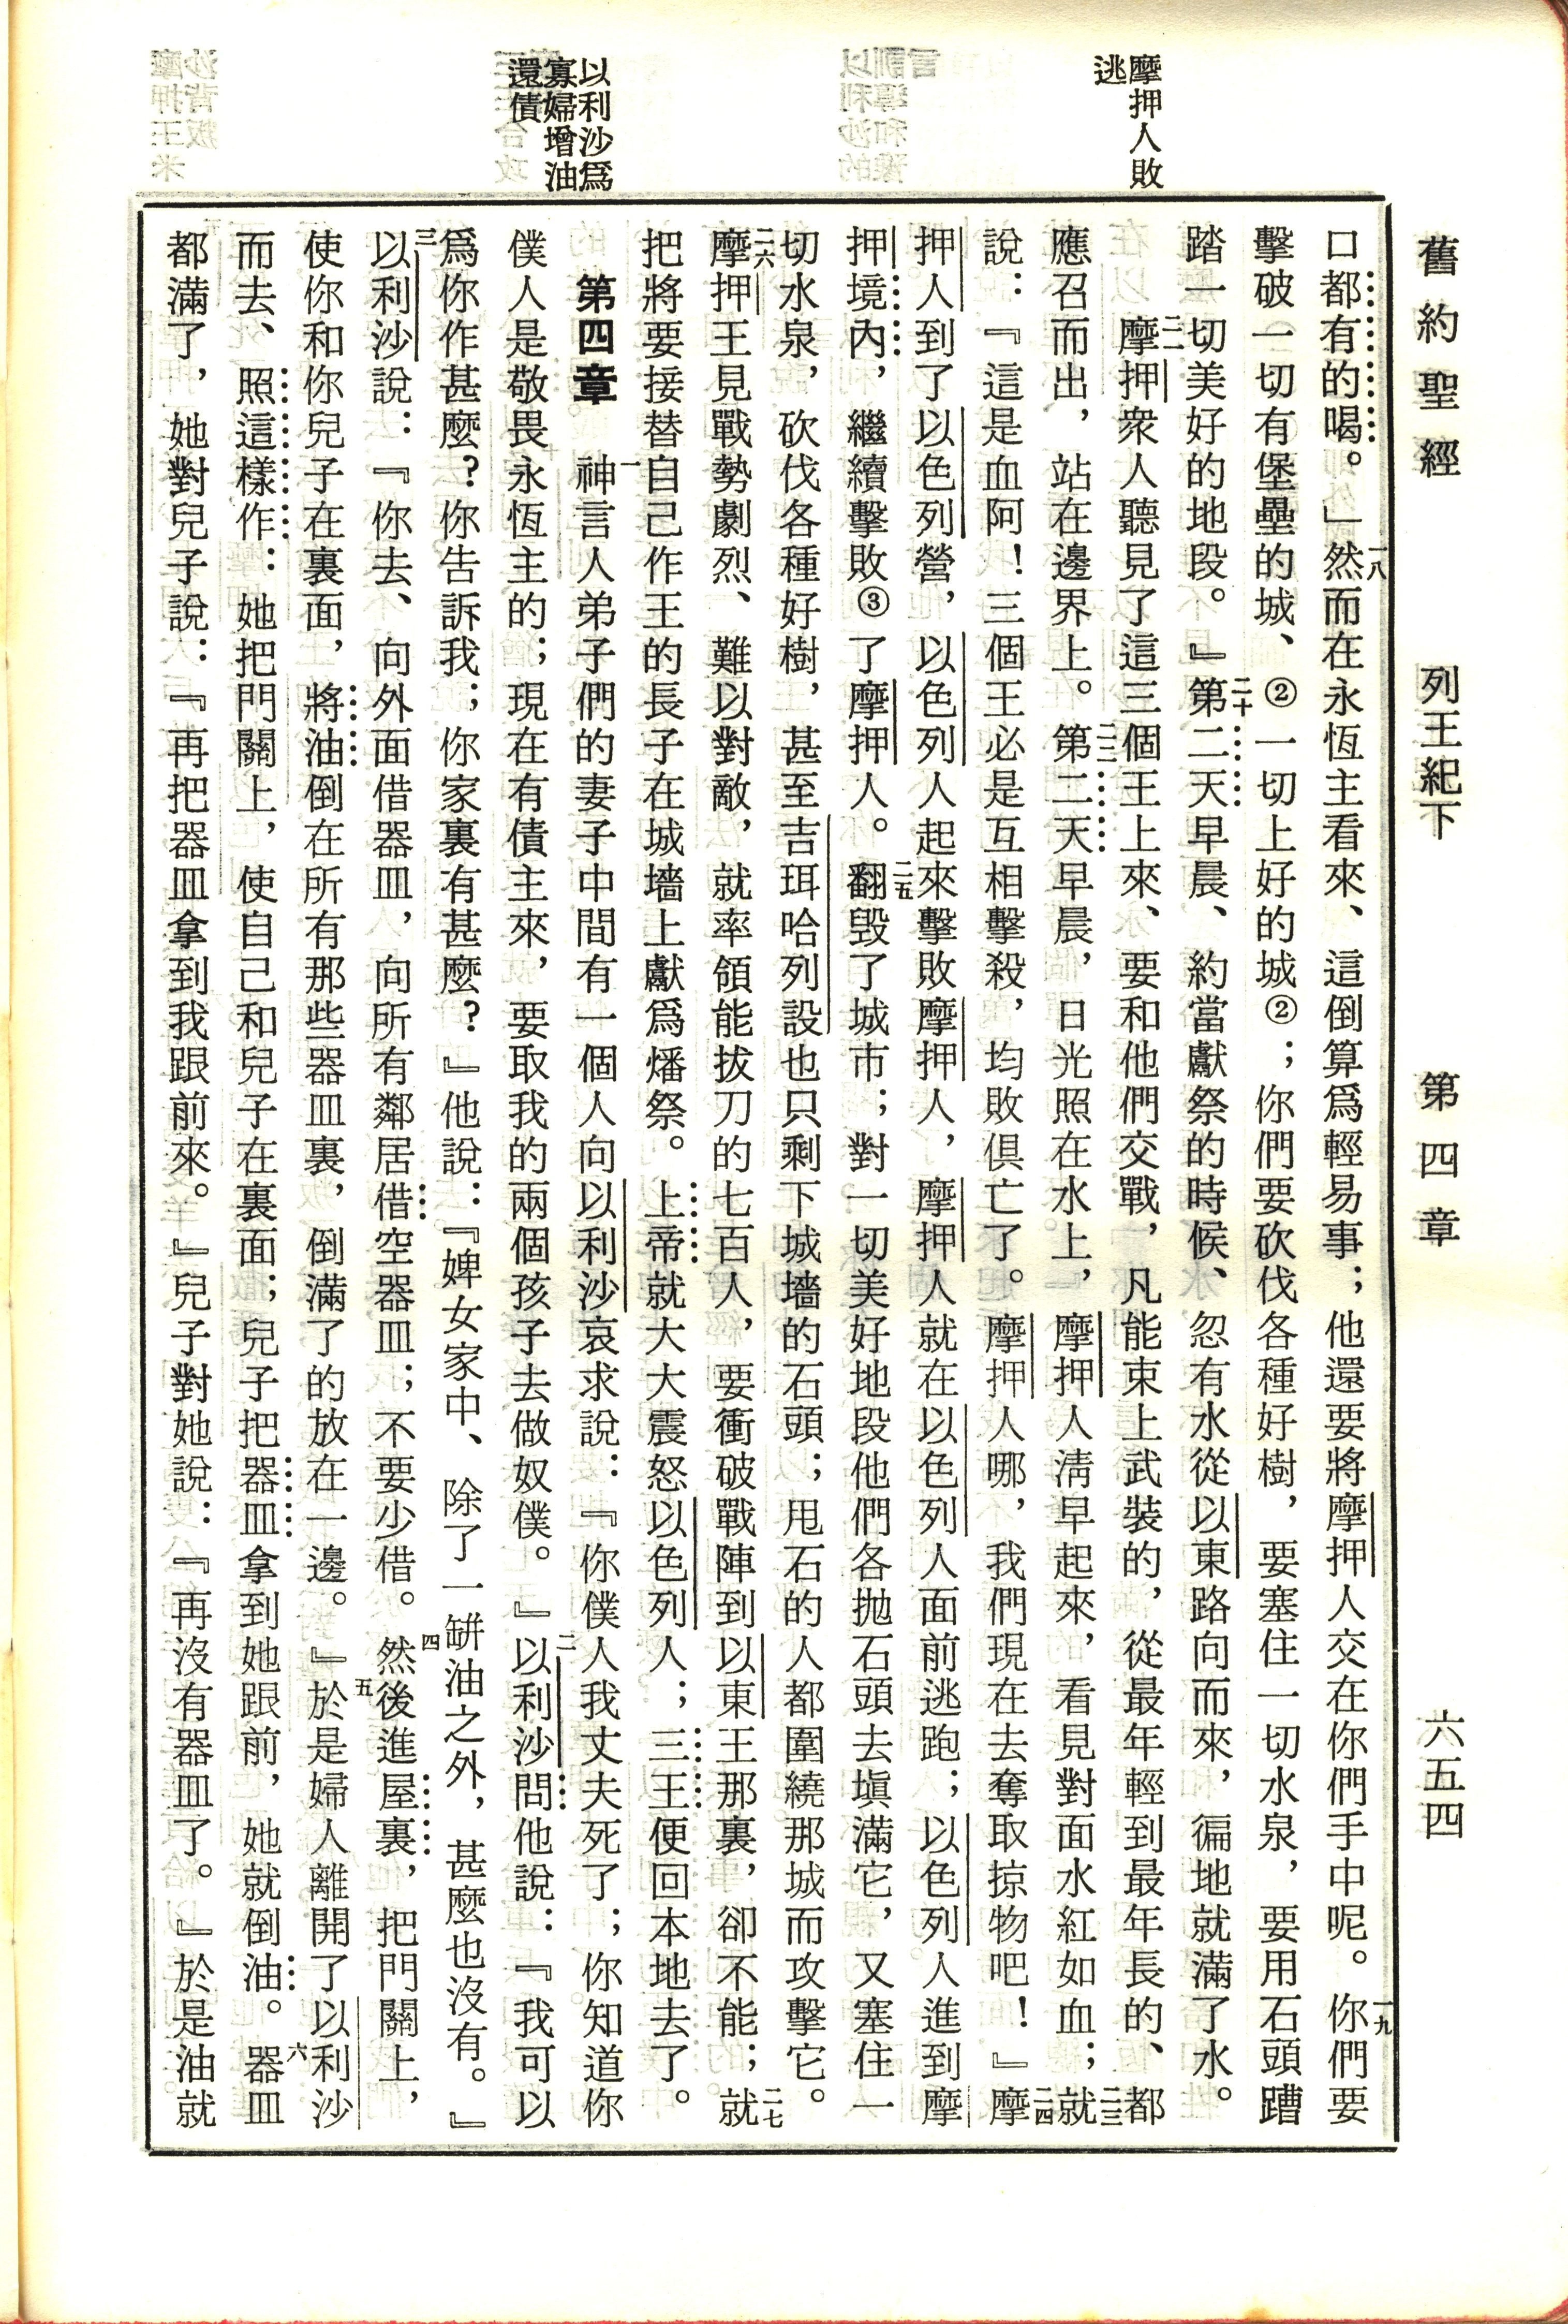 舊約聖經 列王紀下 第四章 六五四
摩押人敗
逃
以利沙爲
寡婦增油
還債
口都有的喝。」一八然而在永恆主看來、這倒算爲輕易事；他還要將摩押人交在你們手中呢。一九你們要
擊破一切有堡壘的城、②一切上好的城②；你們要砍伐各種好樹，要塞住一切水泉，要用石頭蹧
踏一切美好的地段。』二十第二天早晨、約當獻祭的時候、忽有水從以東路向而來，徧地就滿了水。
二一摩押衆人聽見了這三個王上來、要和他們交戰，凡能束上武裝的，從最年輕到最年長的、都
應召而出，站在邊界上。二二第二天早晨，日光照在水上，摩押人淸早起來，看見對面水紅如血；二三就
說：『這是血阿！三個王必是互相擊殺，均敗俱亡了。摩押人哪，我們現在去奪取掠物吧！』二四摩
押人到了以色列營，以色列人起來擊敗摩押人，摩押人就在以色列人面前逃跑；以色列人進到摩
押境內，繼續擊敗③了摩押人。二五翻毀了城市；對一切美好地段他們各拋石頭去塡滿它，又塞住一
切水泉，砍伐各種好樹，甚至吉珥哈列設也只剩下城墻的石頭；甩石的人都圍繞那城而攻擊它。
二六摩押王見戰勢劇烈、難以對敵，就率領能拔刀的七百人，要衝破戰陣到以東王那裏，卻不能；二七就
把將要接替自己作王的長子在城墻上獻爲燔祭。上帝就大大震怒以色列人；三王便回本地去了。
第四章 一神言人弟子們的妻子中間有一個人向以利沙哀求說：『你僕人我丈夫死了；你知道你
僕人是敬畏永恆主的；現在有債主來，要取我的兩個孩子去做奴僕。』二以利沙問他說：『我可以
爲你作甚麼？你告訴我；你家裏有甚麼？』他說：『婢女家中、除了一缾油之外，甚麼也沒有。』
三以利沙說：『你去、向外面借器皿，向所有鄰居借空器皿；不要少借。四然後進屋裏，把門關上，
使你和你兒子在裏面，將油倒在所有那些器皿裏，倒滿了的放在一邊。』五於是婦人離開了以利沙
而去、照這樣作：她把門關上，使自己和兒子在裏面；兒子把器皿拿到她跟前，她就倒油。六器皿
都滿了，她對兒子說：『再把器皿拿到我跟前來。』兒子對她說：『再沒有器皿了。』於是油就